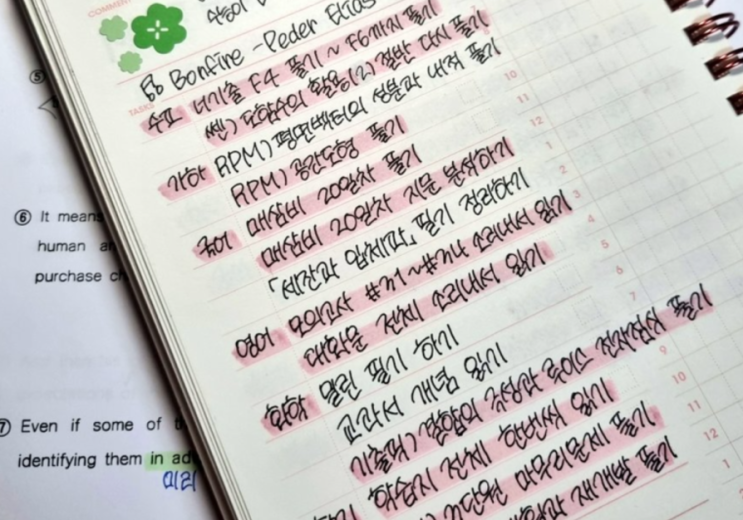 COMMENT
Bonfire - Peder Elias
TASKS
수학 너기출 F4 풀기 ~ F6까지 풀기
쎈) 도함수의 활용(2) 절반 다시 풀기
기하 RPM) 평면벡터의 성분과 내적 풀기
RPM) 공간도형 풀기
국어 매삼비 20일차 풀기
매삼비 20일차 지문 분석하기
필기 정리하기
영어 모의고사 소리내서 읽기
대화문 전체 소리내서 읽기
화학 밀린 필기 하기
교과서 개념 읽기
기출픽) 결합의 극성과 루이스 전자점식 풀기
학습지 전체 한번씩 읽기
단원 마무리문제 풀기
재개발 풀기
10
11
12
1
2
3
4
5
6
7
9
10
11
12
1
⑤
⑥ It means
human
purchase
⑦ Even if some of
identifying them in
미리